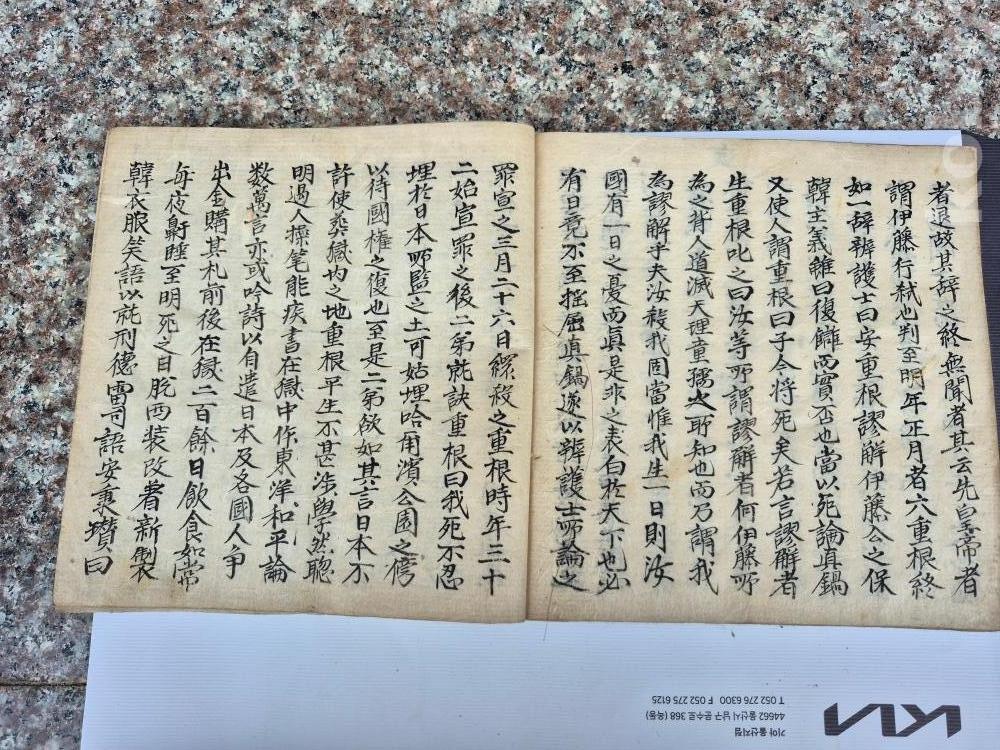 者退故其辞之終無聞者其云先皇帝者
謂伊藤行弑也判至明年正月者六重根終
如一辞辨護士曰安重根謬解伊藤公之保
韓主義雖曰復讎而實否也當以死論眞鍋
又使人謂重根曰子今将死矣若言謬解者
生重根叱之曰汝等所謂謬解者何伊藤所
為之背人道滅天理童孺之所知也而乃謂我
為謬解乎夫汝殺我固當惟我生一日則汝
國有一日之憂而眞是非之表白於天下也必
有日竟不至掘屈眞鍋遂以辨護士所論之
罪宣之三月二十六日縲殺之重根時年三十
二始宣罪之後二弟就訣重根曰我死不忍
埋於日本所監之土可姑埋哈甪濱公園之傍
以待國權之復也至是二弟欲如其言日本不
許使葬獄內之地重根平生不甚涉學然聰
明過人操笔能疾書在獄中作東洋和平論
数萬言亦或吟詩以自遣日本及各國人争
出金購其札前後在獄二百餘日飲食如常
每夜鼾睡至明死之日脫西装改着新製
韓衣服笑語以就刑德雷司語安秉瓚曰
기아 울산지점
44662 울산시 남구 문수로 368 (옥동)
T 052 276 6300 F 052 275 6125
KIA